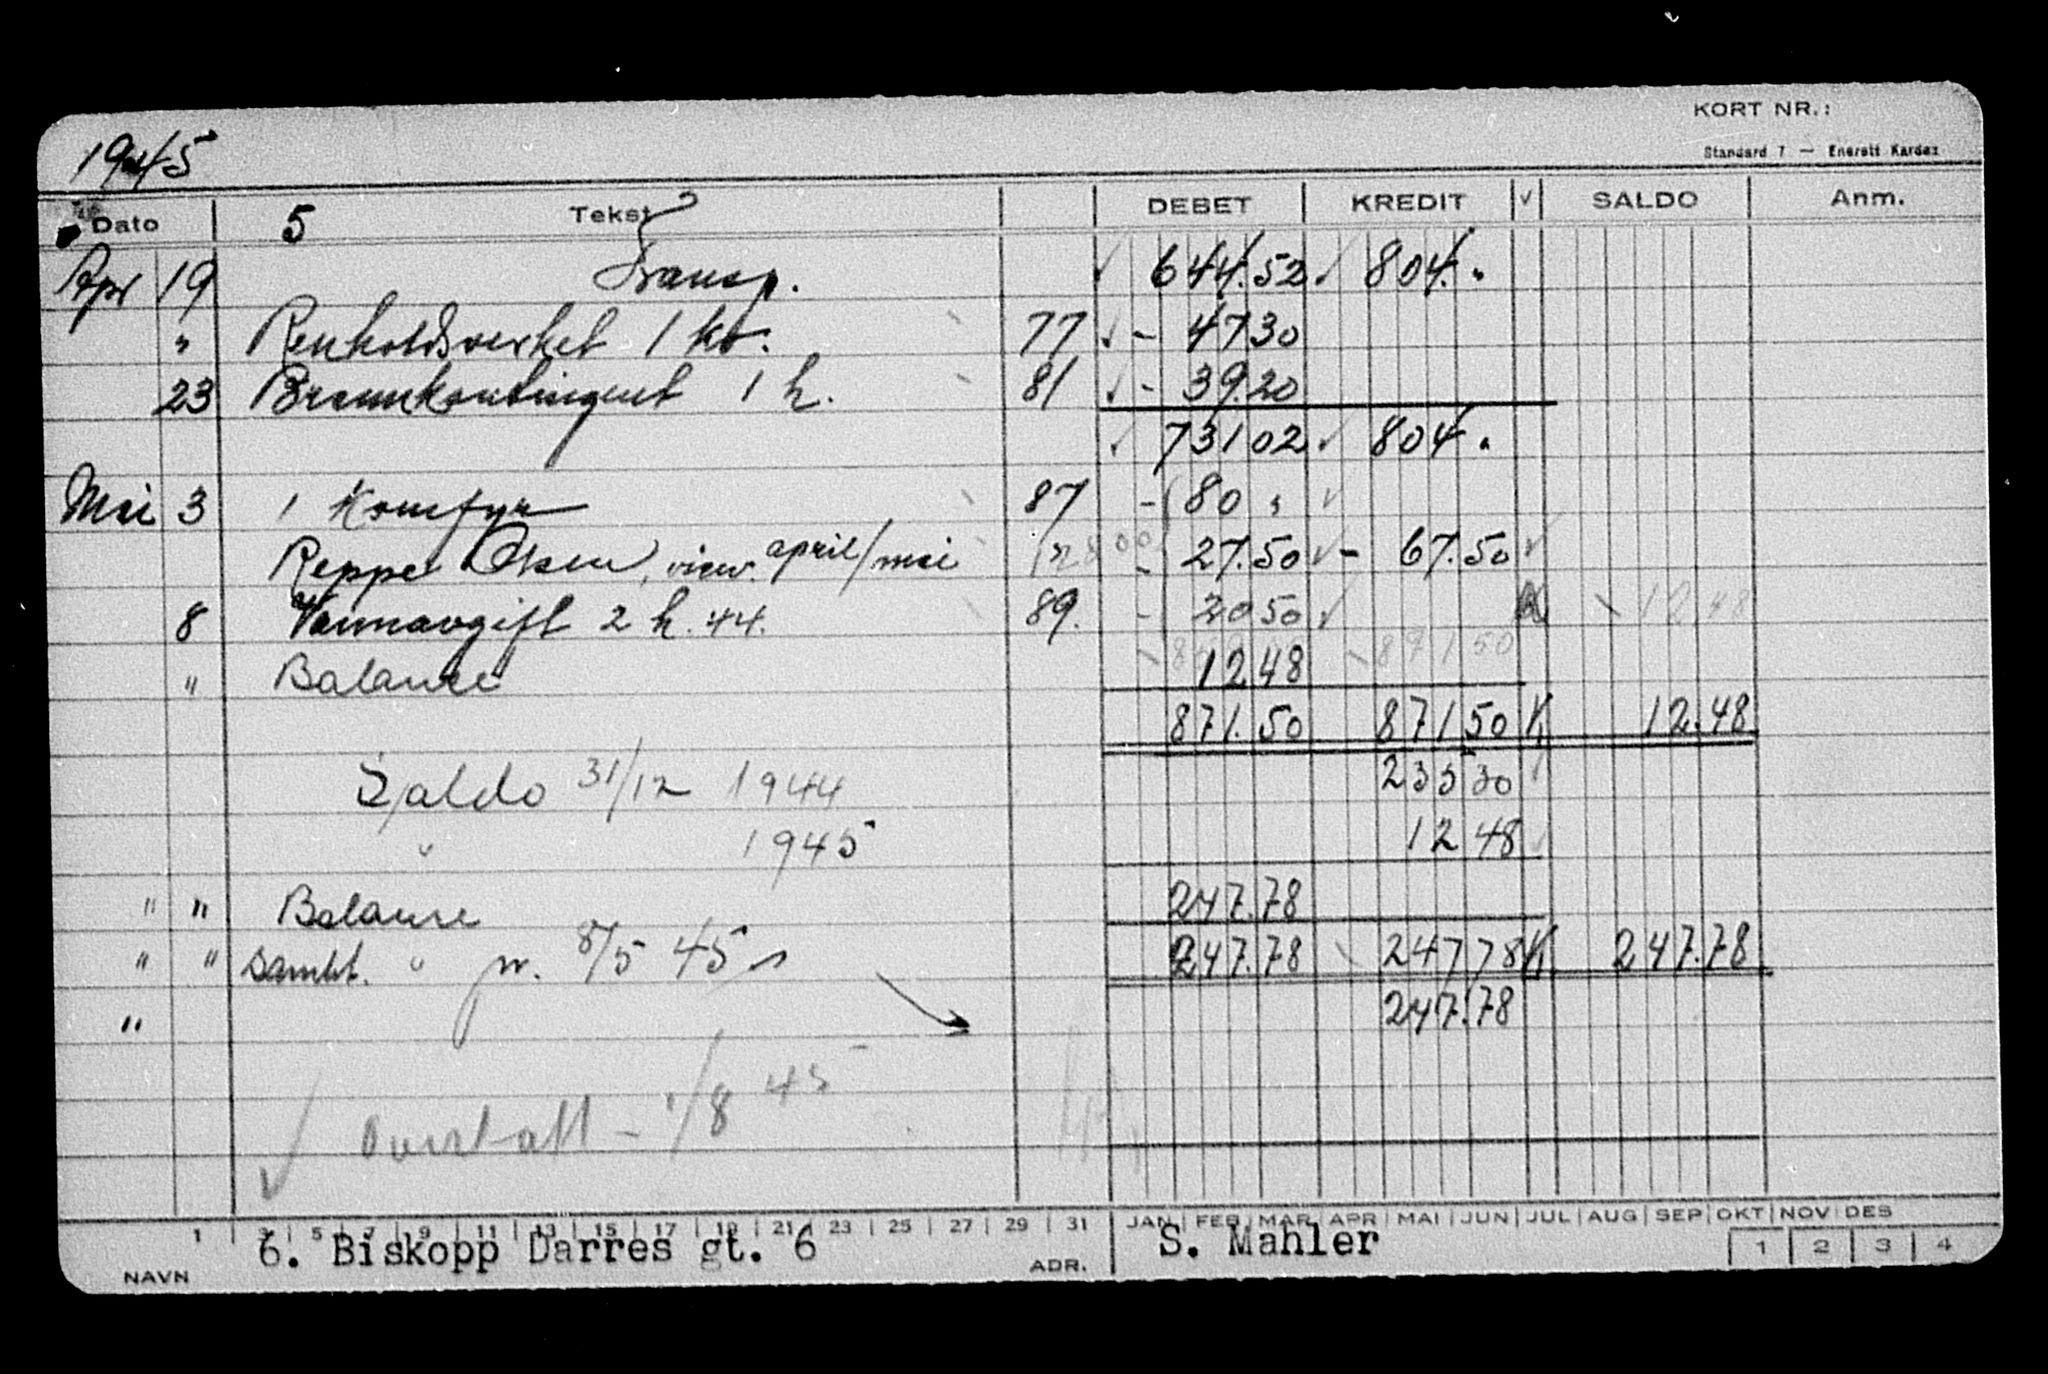 KORT NR.:
1945
Standard 7 — Enerett Kardex
Dato 5 Tekst DEBET KREDIT √ SALDO Anm.
Apr 19 Transp. 644.52 804."
" Renholdsverket 1 kv. 77 - 47 30
23 Brannkontingent 1 h. 81 - 39.20
731 02 804.
Mai 3 1 Komfyr 87 - 80 "
Reppe Olsen, april/mai - 27.50 - 67.50
8 Vannavgift 2 h. 44. 89. - 20 50 12 48
871 50
" Balanse 12 48
871.50 871 50 K 12.48
Saldo 31/12 1944 235 30
" 1945 12 48
" " Balanse 247.78
" " Samlet " pr. 8/5 45 247.78 247 78 K 247.78
" 247.78
√ 1/8 45
1 3 5 7 9 11 13 15 17 19 21 23 25 27 29 31 JAN FEB MAR APR MAI JUN JUL AUG SEP OKT NOV DES
6. Biskopp Darres gt. 6 S. Mahler 1 2 3 4
NAVN ADR.